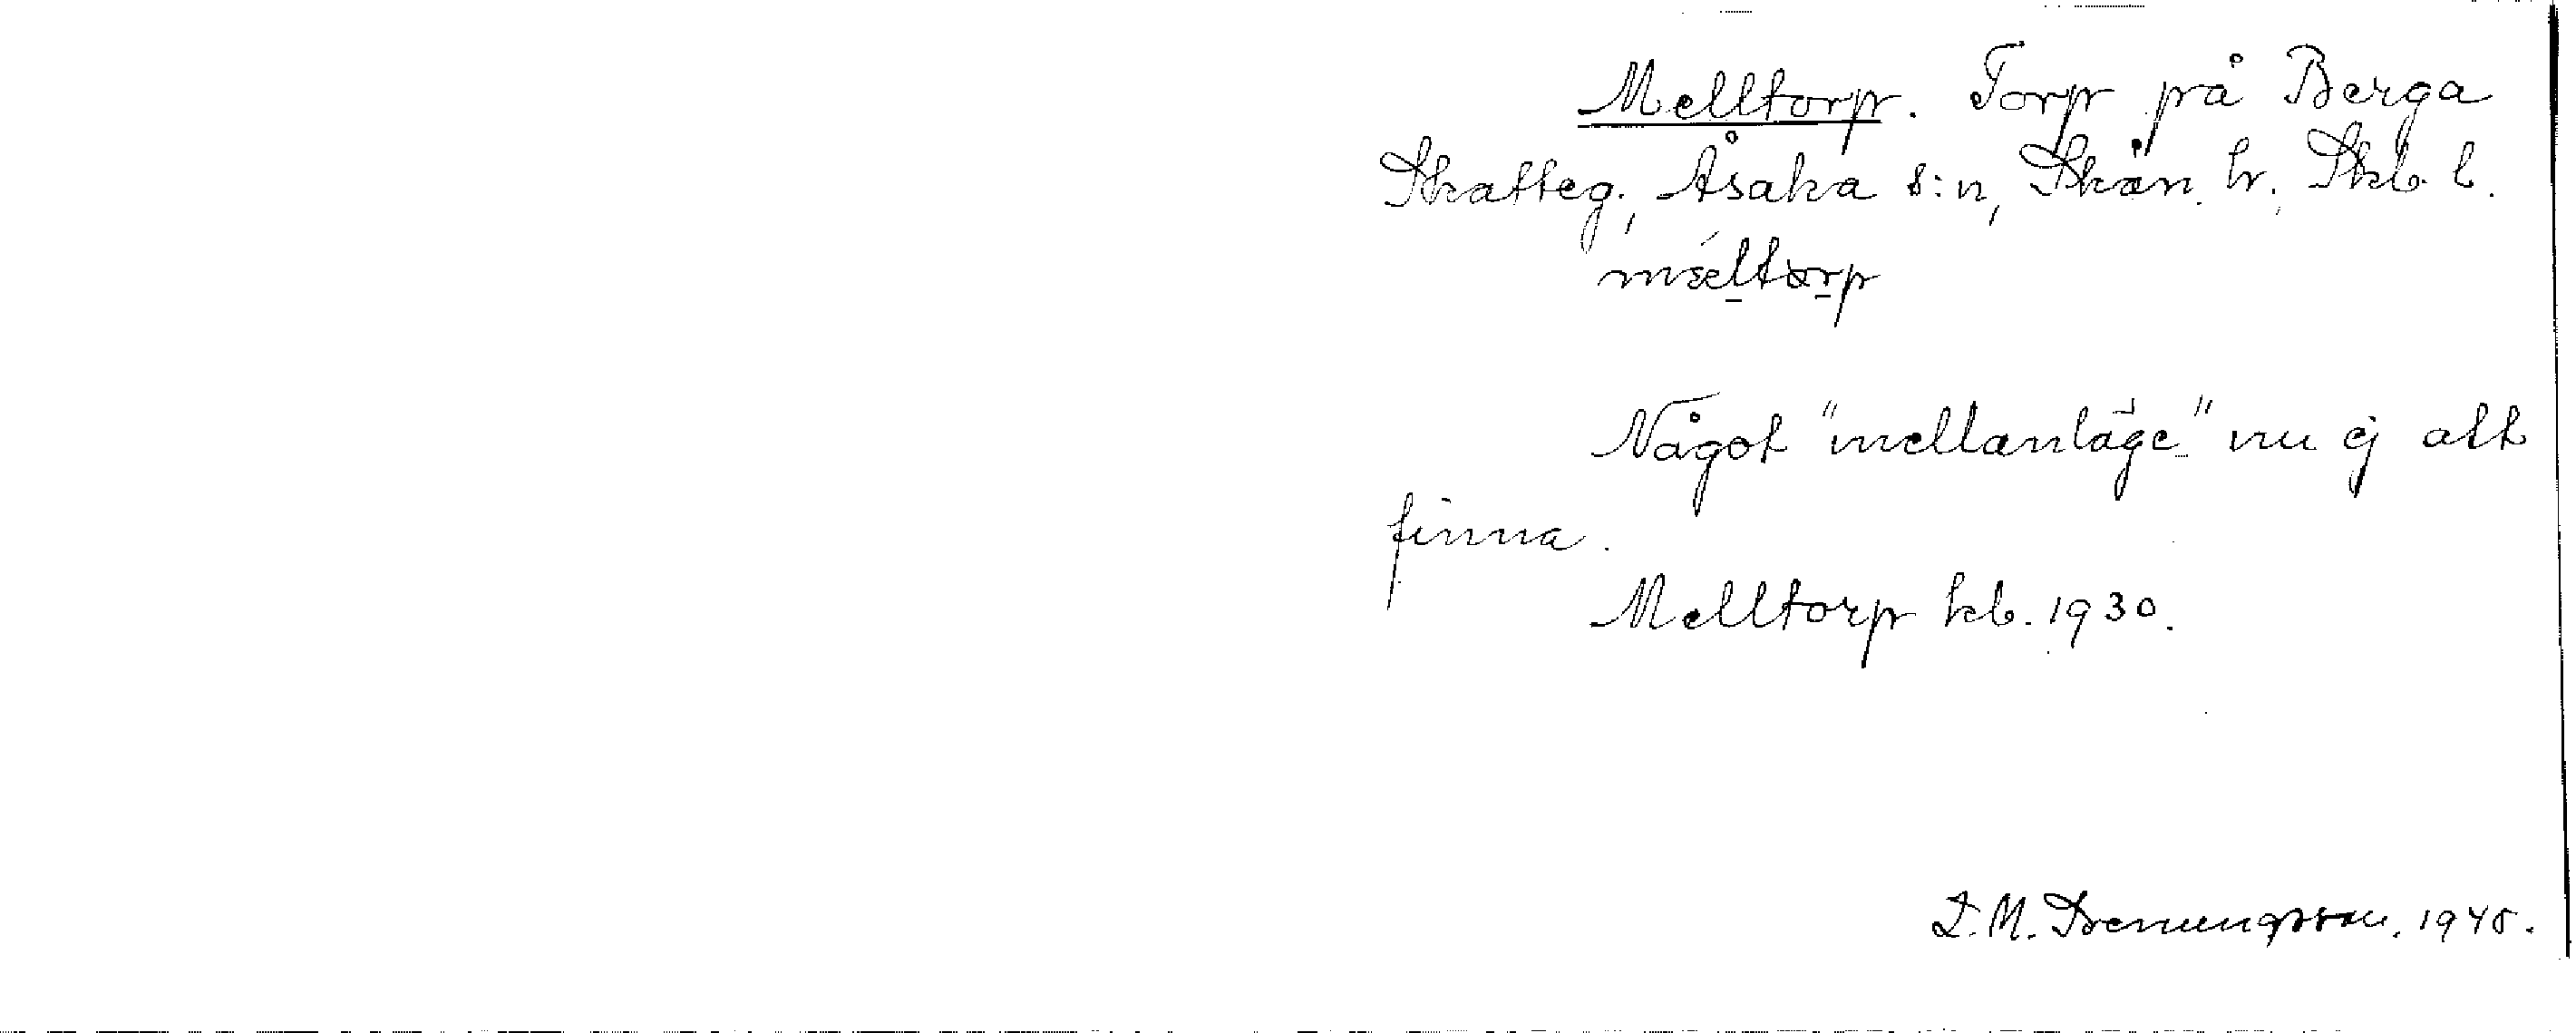 Melltorp. Torp på Berga
Skatteg., Åsaka s:n, Skån. hr. Skb. l.
mæ̀ltɔrp
Något "mellanläge" nu ej att
finna.
Melltorp kb. 1930.
D. M. 1945.